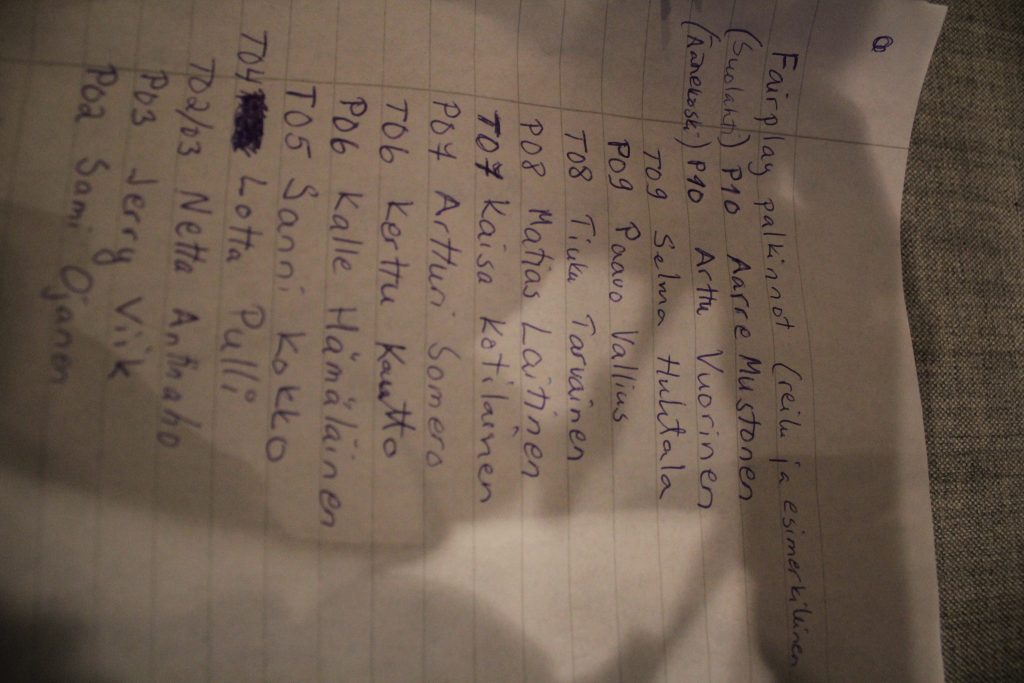 Fairplay palkinnot (reilu ja esimerkillinen
(Suolahti) P10 Aarre Mustonen
(Äänekoski) P10 Arttu Vuorinen
T09 Selma Huhtala
P09 Paavo Vallius
T08 Tiuku Tarvainen
P08 Matias Laitinen
T07 Kaisa Kotilainen
P07 Artturi Somero
T06 Kerttu Kautto
P06 Kalle Hämäläinen
T05 Sanni Kokko
T04 Lotta Pulli
T02/03 Netta Anttiaho
P03 Jerry Viik
P02 Sami Ojanen